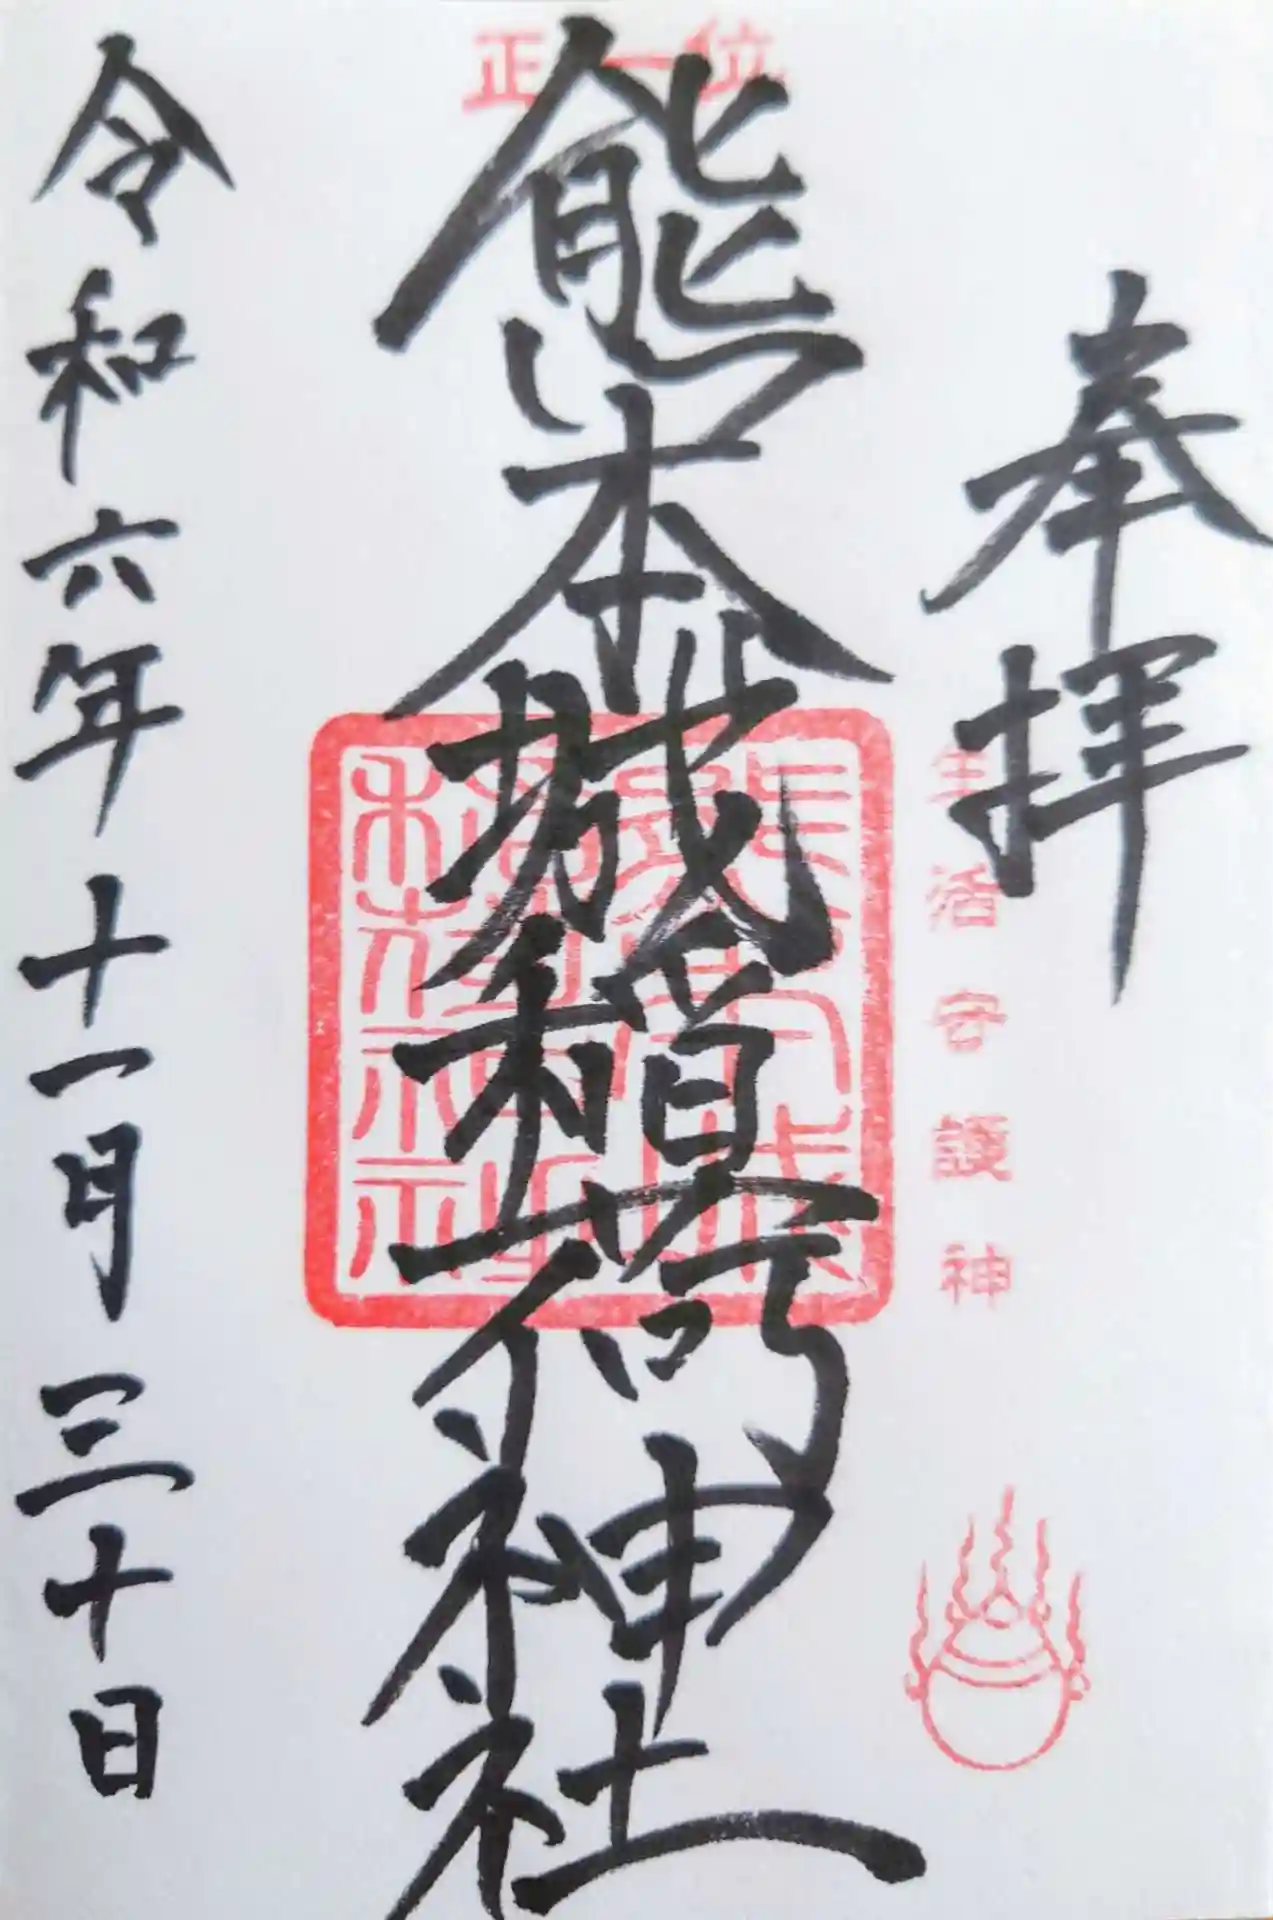 奉拝
生活守護神
正一位
熊本城稲荷神社
熊本城
稲荷神社
令和六年十一月三十日